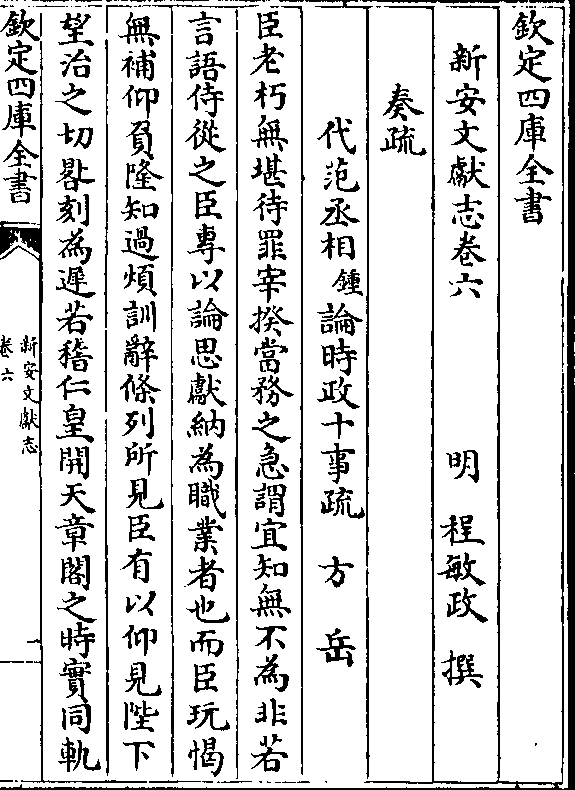 欽定四庫全書
新安文獻志卷六 明 程敏政 撰
奏疏
代范丞相鍾論時政十事疏 方岳
臣老朽無堪待罪宰揆當務之急謂宜知無不為非若
言語侍從之臣專以論思獻納為職業者也而臣玩愒
無補仰負隆知過煩訓辭條列所見臣有以仰見陛下
望治之切晷刻為遲若稽仁皇開天章閣之時實同軌
欽定四庫全書
新安文獻志
卷六
一